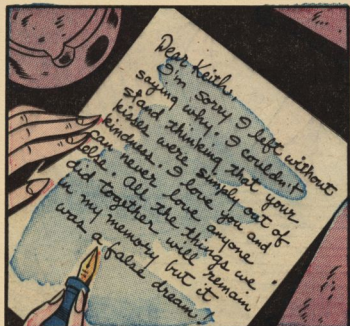 Dear Keith,
I'm sorry I left without
saying why. I couldn't
stand thinking that your
kisses were simply out of
kindness. I love you and
can never love anyone
else. All the things we
did together will remain
in my memory but it
was a false dream!